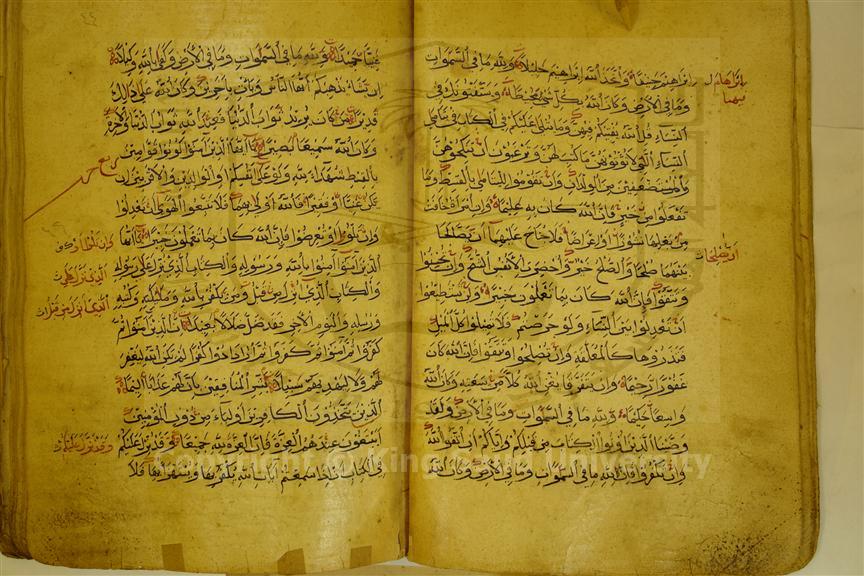 إبراهيم حنيفا واتخذ الله إبراهيم خليلا ولله ما في السموات
وما في الأرض وكان الله بكل شيء محيطا ويستفتونك في
النساء قل الله يفتيكم فيهن وما يتلى عليكم في الكتاب في يتامى
النساء اللتي لا تؤتونهن ما كتب لهن وترغبون أن تنكحوهن
والمستضعفين من الولدان وأن تقوموا لليتامى بالقسط وما
تفعلوا من خير فإن الله كان به عليما وإن امرأة خافت
من بعلها نشوزا أو إعراضا فلا جناح عليهما أن يصلحا
بينهما صلحا والصلح خير وأحضرت الأنفس الشح وإن تحسنوا
وتتقوا فإن الله كان بما تعملون خبيرا ولن تستطيعوا
أن تعدلوا بين النساء ولو حرصتم فلا تميلوا كل الميل
فتذروها كالمعلقة وإن تصلحوا وتتقوا فإن الله كان
غفورا رحيما وإن يتفرقا يغن الله كلا من سعته وكان الله
واسعا حكيما ولله ما في السموات وما في الأرض ولقد
وصينا الذين أوتوا الكتاب من قبلكم وإياكم أن اتقوا الله
وإن تكفروا فإن لله ما في السموات وما في الأرض وكان الله
غنيا حميدا ولله ما في السموات وما في الأرض وكفى بالله وكيلا
إن يشأ يذهبكم أيها الناس ويأت بآخرين وكان الله على ذلك
قديرا من كان يريد ثواب الدنيا فعند الله ثواب الدنيا والآخرة
وكان الله سميعا بصيرا يا أيها الذين آمنوا كونوا قوامين
بالقسط شهداء لله ولو على أنفسكم أو الوالدين والأقربين إن
يكن غنيا أو فقيرا فالله أولى بهما فلا تتبعوا الهوى أن تعدلوا
وإن تلووا أو تعرضوا فإن الله كان بما تعملون خبيرا يا أيها
الذين آمنوا آمنوا بالله ورسوله والكتاب الذي نزل على رسوله
والكتاب الذي أنزل من قبل ومن يكفر بالله وملئكته وكتبه
ورسله واليوم الآخر فقد ضل ضلالا بعيدا إن الذين آمنوا ثم
كفروا ثم آمنوا ثم كفروا ثم ازدادوا كفرا لم يكن الله ليغفر
لهم ولا ليهديهم سبيلا بشر المنافقين بأن لهم عذابا أليما
الذين يتخذون الكافرين أولياء من دون المؤمنين
أيبتغون عندهم العزة فإن العزة لله جميعا وقد نزل عليكم
في الكتاب أن إذا سمعتم آيات الله يكفر بها ويستهزأ بها فلا
Copyright © King Saud University